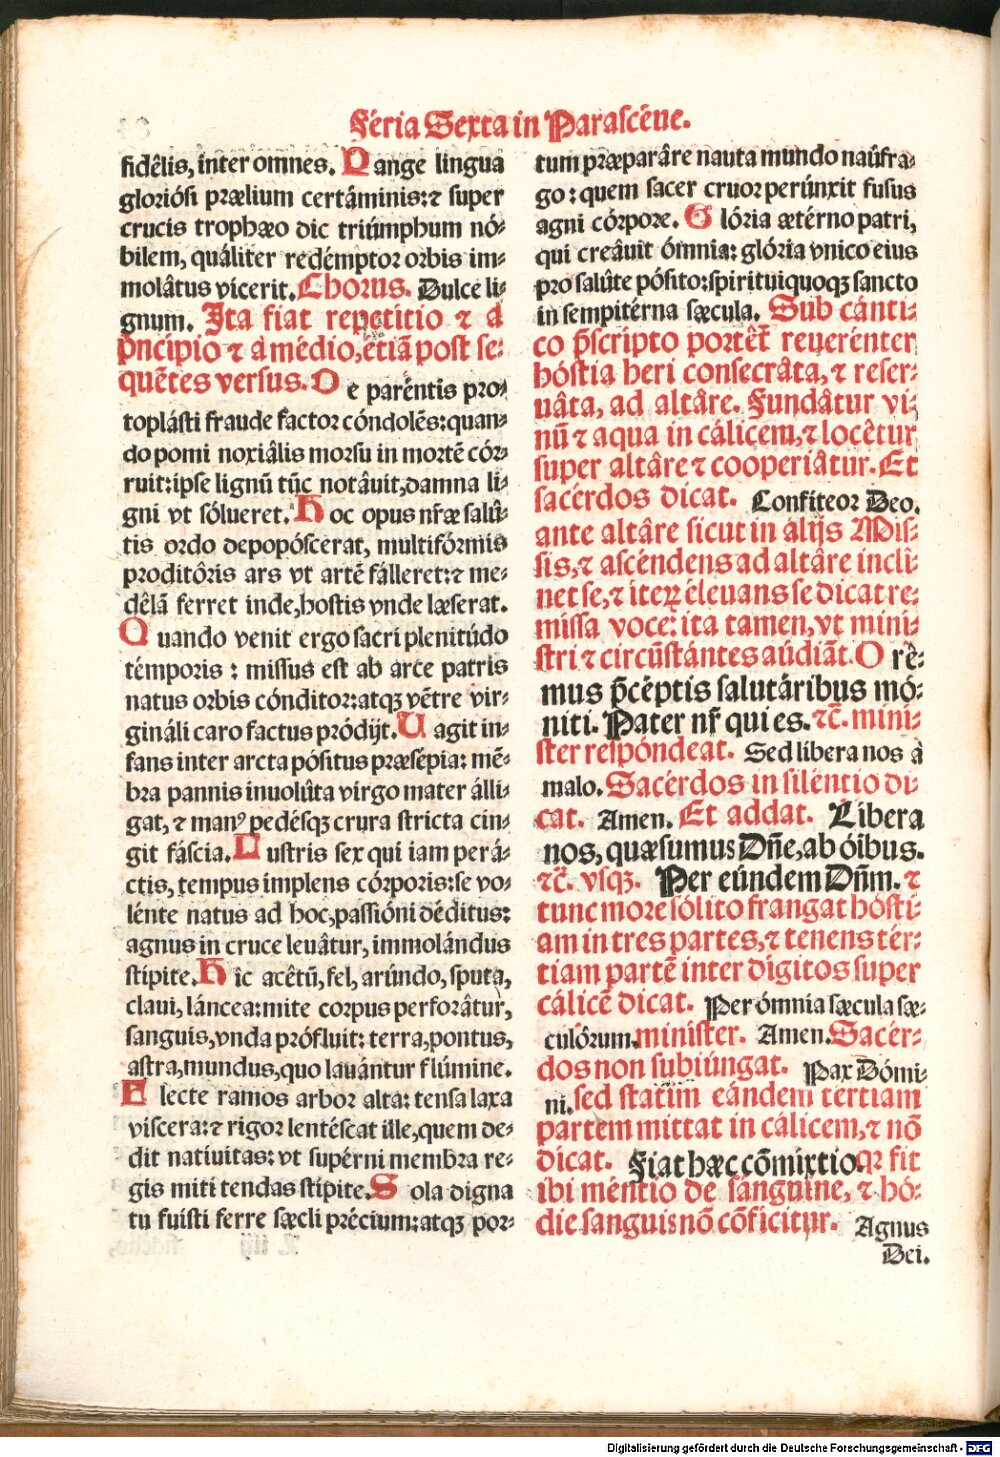 Féria Sexta in Parascêue.
fidêlis, inter omnes. Pange lingua
gloriósi prælium certáminis: ⁊ super
crucis trophæo dic triúmphum nó⸗
bilem, quáliter redémptor orbis im⸗
molâtus vicerit. Chorus. Dulce li⸗
gnum. Ita fiat repetitio ⁊ á
pncipio ⁊ á médio, étiā post se⸗
quētes versus. De paréntis pro⸗
toplásti fraude factor cóndolēs: quan⸗
do pomi noxiâlis morsu in mortē cór⸗
ruit: ipse lignū tūc notâuit, damna li⸗
gni vt sólueret. Hoc opus nr̄æ salû⸗
tis ordo depopóscerat, multifórmis
proditôris ars vt artē fálleret: ⁊ me⸗
dêlā ferret inde, hostis vnde læserat.
Quando venit ergo sacri plenitúdo
témporis : missus est ab arce patris
natus orbis cónditor: atqꝫ vētre vir⸗
gináli caro factus pródijt. Vagit in⸗
fans inter arcta pósitus præsépia: mē⸗
bra pannis inuolûta virgo mater álli⸗
gat, ⁊ manꝰ pedésqꝫ crura stricta cin⸗
git fáscia. Lustris sex qui iam perá⸗
ctis, tempus implens córporis: se vo⸗
lénte natus ad hoc, passióni déditus:
agnus in cruce leuâtur, immolándus
stipite. Hic acêtū, fel, arúndo, sputa,
claui, láncea: mite corpus perforâtur,
sanguis, vnda prófluit: terra, pontus,
astra, mundus, quo lauántur flúmine.
Flecte ramos arbor alta: tensa laxa
viscera: ⁊ rigor lentéscat ille, quem de⸗
dit natiuitas: vt supérni membra re⸗
gis miti tendas stipite. Sola digna
tu fuisti ferre sæcli précium: atqꝫ por⸗
tum præparâre nauta mundo naûfra⸗
go : quem sacer cruor perúnxit fusus
agni córpore. Glória ætérno patri,
qui creâuit ómnia: glória vnico eius
pro salûte pósito: spirituiquoqꝫ sancto
in sempitérna sæcula. Sub cánti⸗
co p̄scripto portēt reuerénter
hóstia heri consecrâta, ⁊ reser⸗
uâta, ad altâre. Fundâtur vi⸗
nū ⁊ aqua in cálicem, ⁊ locêtur
super altâre ⁊ cooperiâtur. Et
sacérdos dicat. Confiteor Deo.
ante altâre sicut in álijs Mis⸗
sis, ⁊ ascéndens ad altâre incli⸗
net se, ⁊ iteꝝ éleuans se dicat re⸗
missa voce: ita tamen, vt mini⸗
stri ⁊ circūstántes aúdiāt. Orē⸗
mus p̄céptis salutáribus mó⸗
niti. Pater nr̄ qui es. ⁊c̄. mini⸗
ster respóndeat. Sed libera nos à
malo. Sacérdos in siléntio di⸗
cat. Amen. Et addat. Libera
nos, quæsumus Dn̄e, ab óibus.
⁊c̄. vsqꝫ. Per eúndem Dn̄m. ⁊
tunc more sólito frangat hósti⸗
am in tres partes, ⁊ tenens tér⸗
tiam partē inter digitos super
cálicē dicat. Per ómnia sæcula sæ⸗
culórum. minister. Amen. Sacér⸗
dos non subiúngat. Pax Dómi⸗
ni. sed statim eándem tértiam
partem mittat in cálicem, ⁊ nō
dicat. Fiat hæc cōmixtio. qꝛ fit
ibi méntio de sánguine, ⁊ hó⸗
die sanguis nō cōficitur. Agnus
Dei.
Digitalisierung gefördert durch die Deutsche Forschungsgemeinschaft - DFG